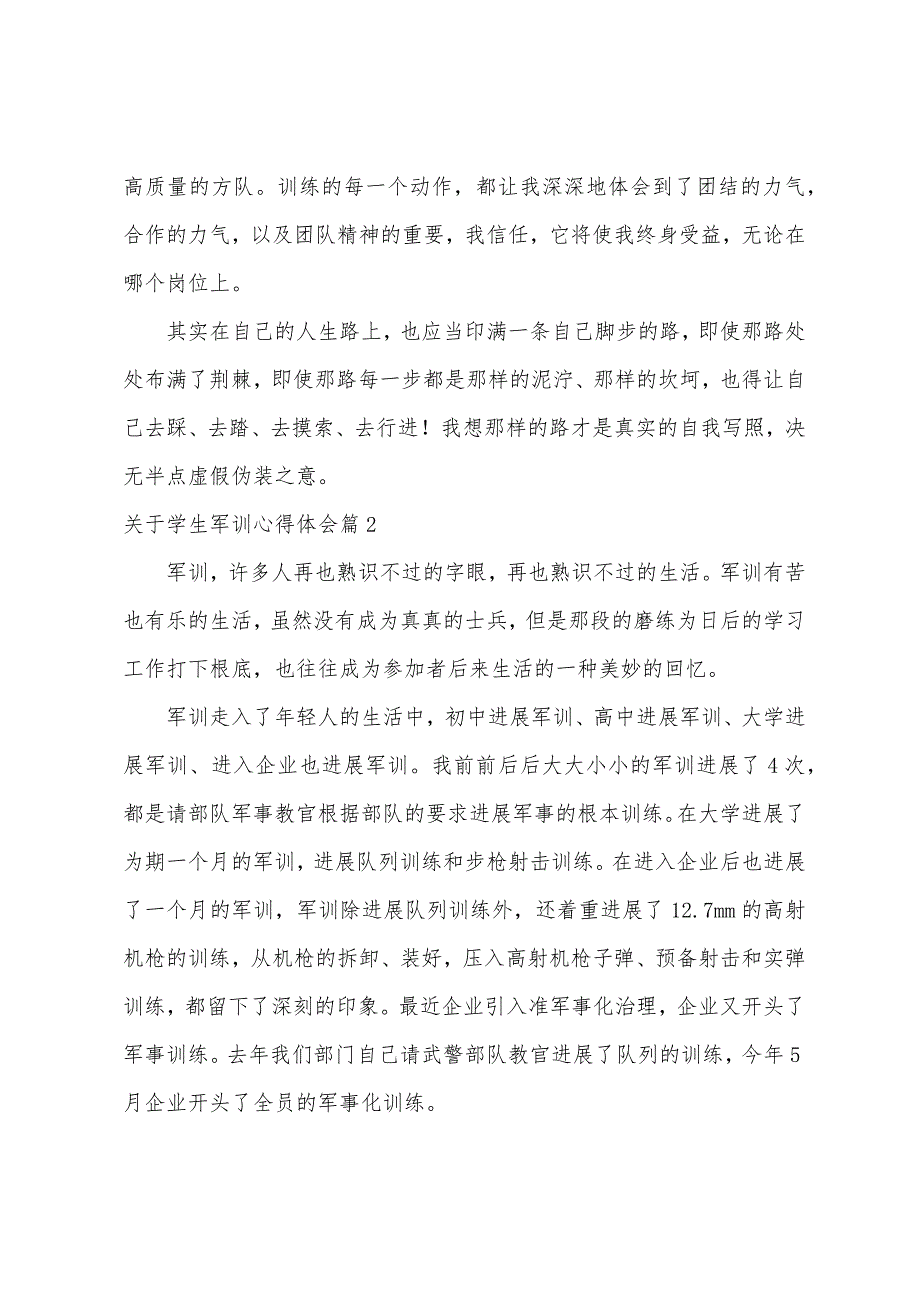 高质量的方队。训练的每一个动作，都让我深深地体会到了团结的力气，
合作的力气，以及团队精神的重要，我信任，它将使我终身受益，无论在
哪个岗位上。
其实在自己的人生路上，也应当印满一条自己脚步的路，即使那路处
处布满了荆棘，即使那路每一步都是那样的泥泞、那样的坎坷，也得让自
己去踩、去踏、去摸索、去行进！我想那样的路才是真实的自我写照，决
无半点虚假伪装之意。
关于学生军训心得体会篇2
军训，许多人再也熟识不过的字眼，再也熟识不过的生活。军训有苦
也有乐的生活，虽然没有成为真真的士兵，但是那段的磨练为日后的学习
工作打下根底，也往往成为参加者后来生活的一种美妙的回忆。
军训走入了年轻人的生活中，初中进展军训、高中进展军训、大学进
展军训、进入企业也进展军训。我前前后后大大小小的军训进展了4次，
都是请部队军事教官根据部队的要求进展军事的根本训练。在大学进展了
为期一个月的军训，进展队列训练和步枪射击训练。在进入企业后也进展
了一个月的军训，军训除进展队列训练外，还着重进展了12.7mm的高射
机枪的训练，从机枪的拆卸、装好，压入高射机枪子弹、预备射击和实弹
训练，都留下了深刻的印象。最近企业引入准军事化治理，企业又开头了
军事训练。去年我们部门自己请武警部队教官进展了队列的训练，今年5
月企业开头了全员的军事化训练。